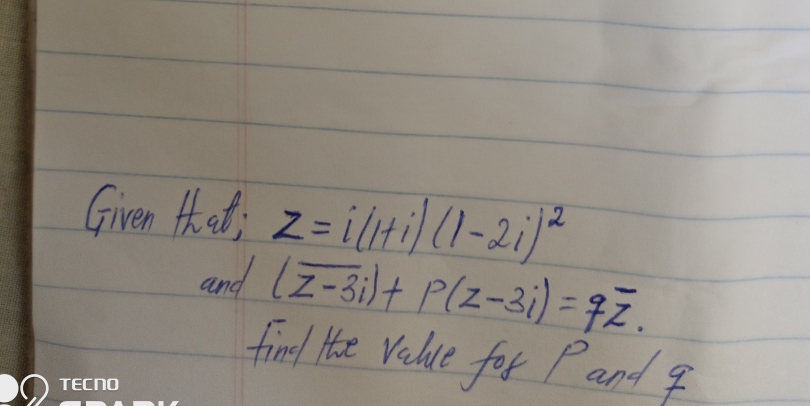 Given that; z = i(1+i)(1-2i)²
and (\overline{z-3i}) + P(z-3i) = q\overline{z}.
find the value for P and q
TECNO
SPARK